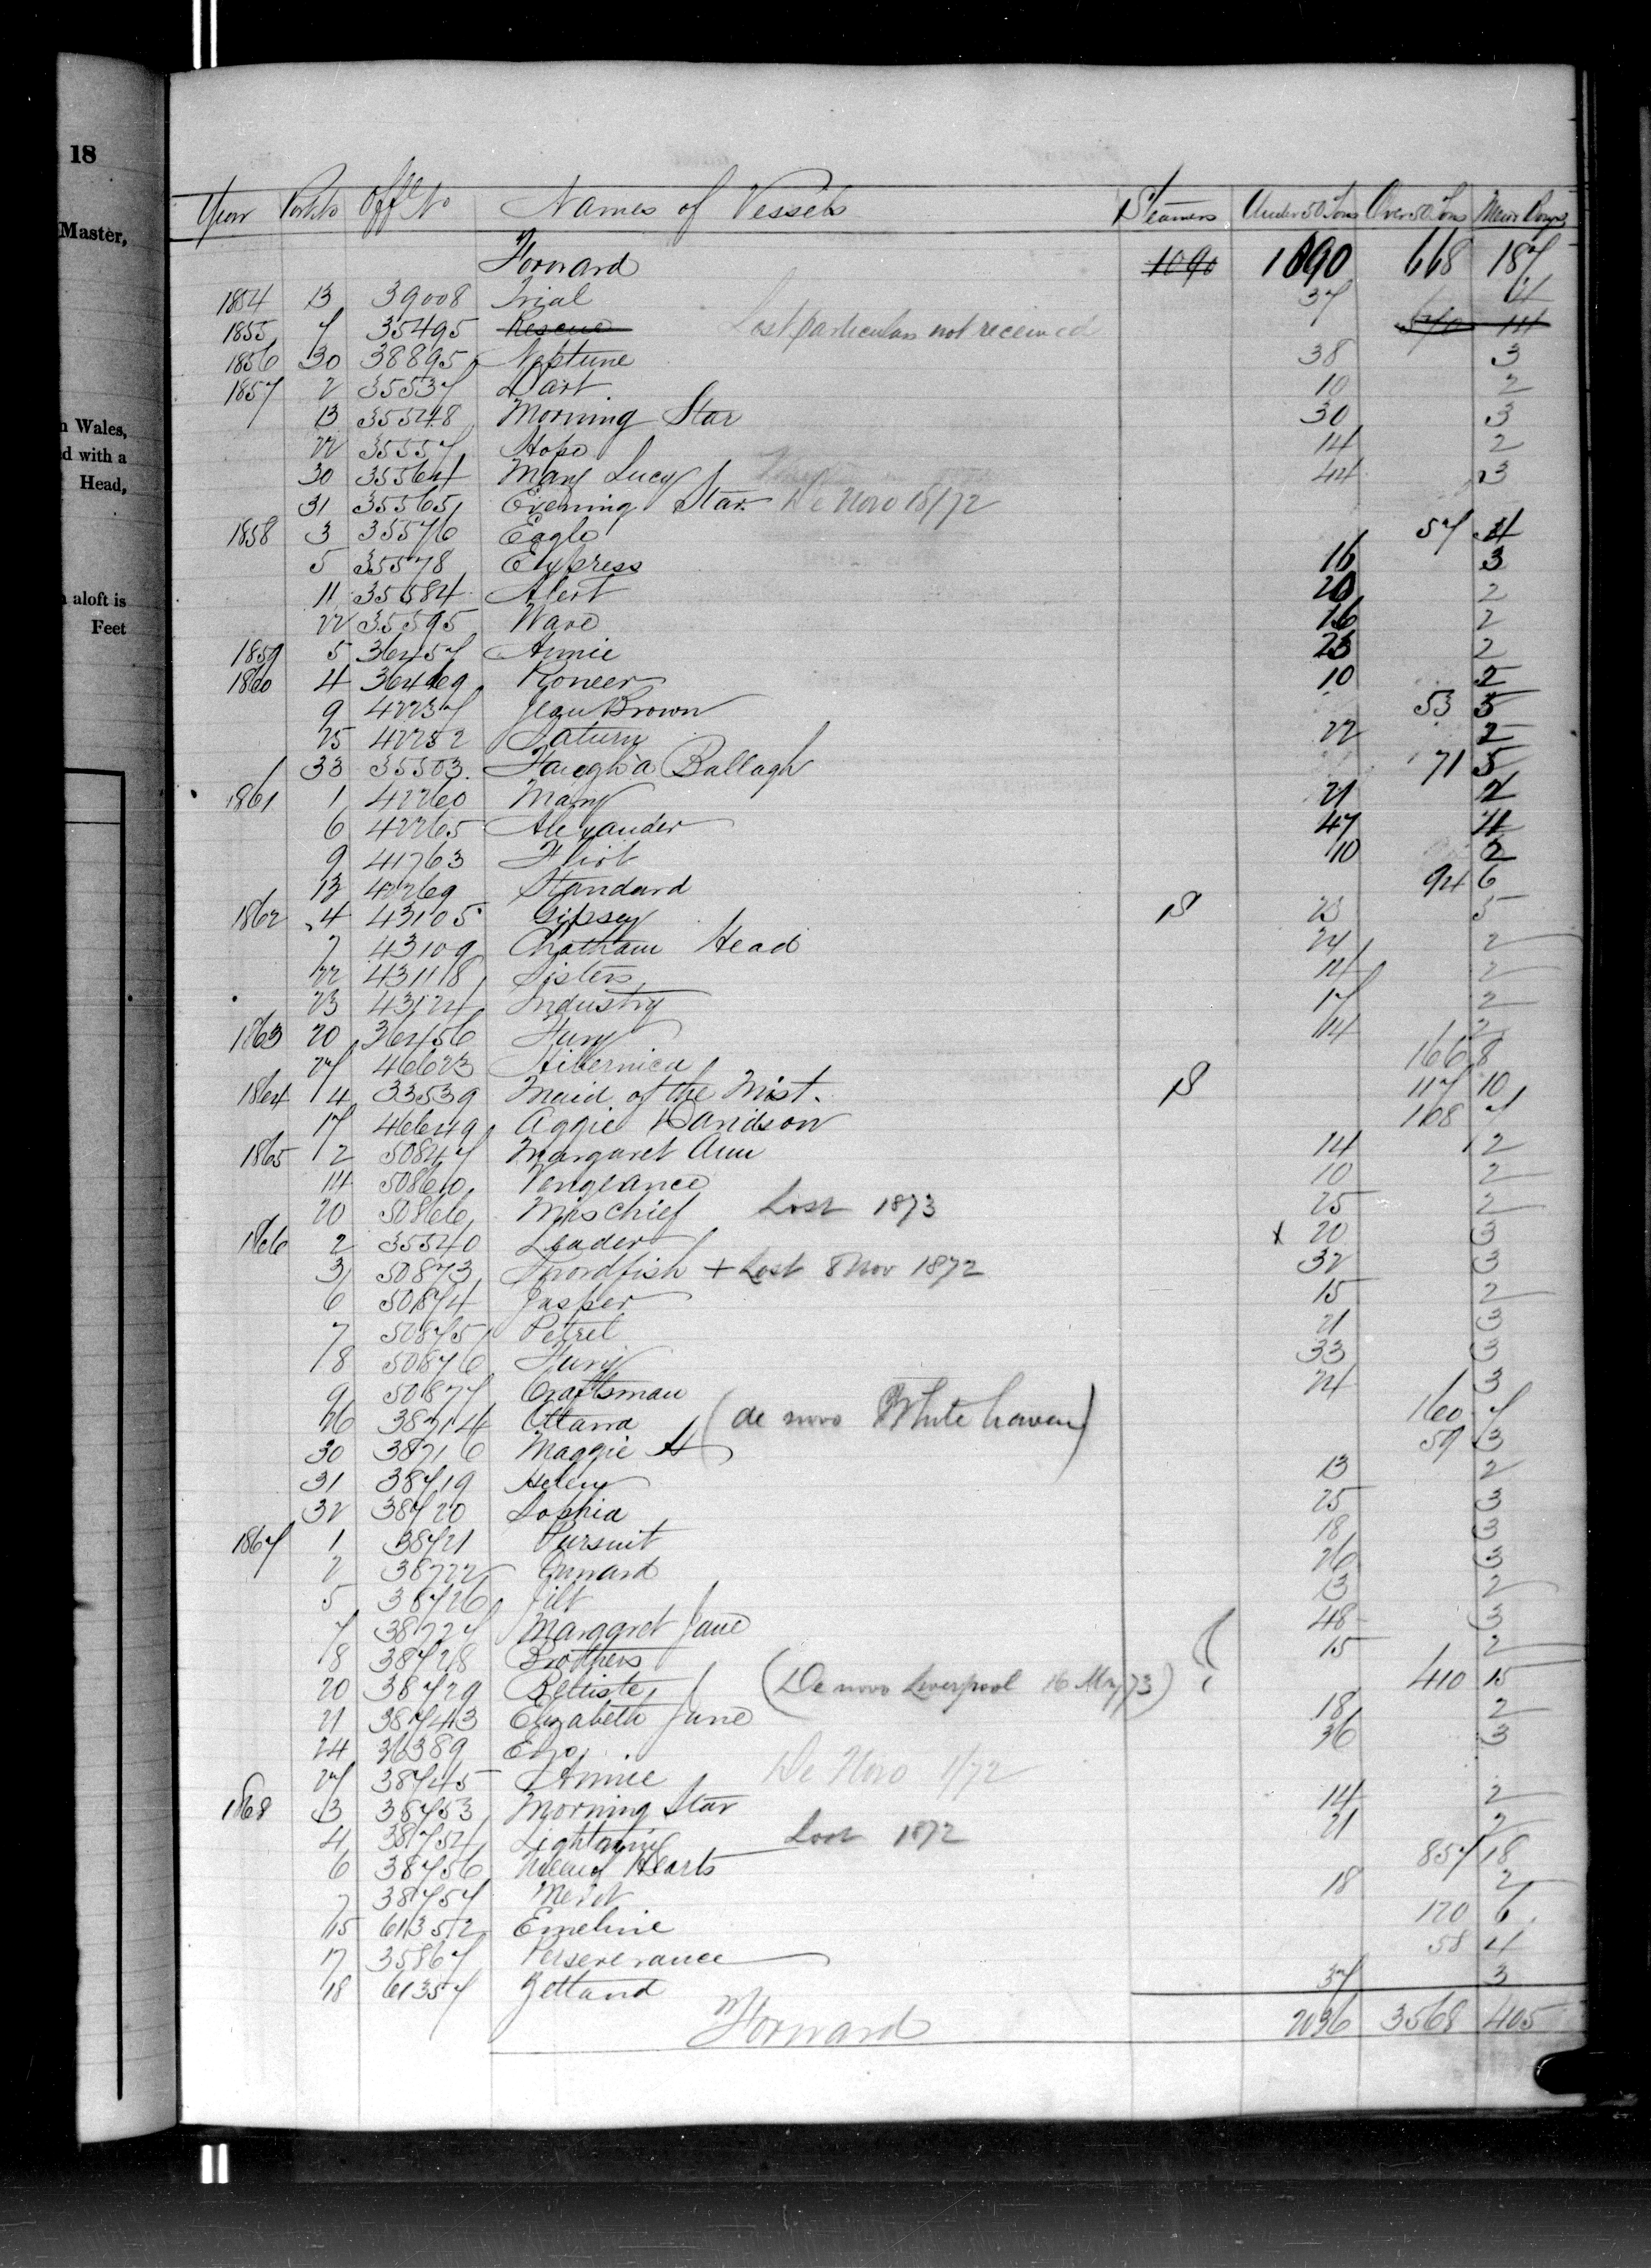 18
Master,
n Wales,
d with a
Head,
aloft is
Feet
Year Port No Offl No Names of Vessels Steamers Under 50 Tons Over 50 Tons Men & Boys
Forward 1090 1090 668 187
1854 13 39008 Trial 37 4
1855 7 35495 Rescue Lost particulars not received 540 14
1856 30 38895 Neptune 38 3
1857 2 35537 Dart 10 2
13 35548 Morning Star 30 3
22 35557 Hope 14 2
30 35564 Mary Lucy 44 3
31 35565 Evening Star De Novo 18/72
1858 3 35576 Eagle 57 4
5 35578 Express 16 3
11 35584 Alert 20 2
22 35595 Wave 16 2
1859 5 36457 Annie 23 2
1860 4 36469 Pioneer 10 2
9 42237 Jean Brown 53 5
25 42252 Saturn 22 2
33 35503 Faugh a Ballagh 71 5
1861 1 42260 Mary 21 2
6 42265 Alexander 47 4
9 41763 Flirt 10 2
13 42269 Standard 94 6
1862 4 43105 Gipsey S 23 5
7 43109 Chatham Head 24 2
22 43118 Sisters 14 2
23 43124 Industry 17 2
1863 20 36456 Fury 14 2
27 46623 Hibernica 166 8
1864 14 33539 Maid of the Mist. S 117 10
17 46649 Aggie Davidson 108 7
1865 2 50847 Margaret Ann 14 2
14 50860 Vengeance 10 2
20 50866 Mischief Lost 1873 25 2
1866 2 35540 Leader x 20 3
3 50873 Swordfish + Lost 8 Nov 1872 32 3
6 50874 Jasper 15 2
7 50875 Petrel 21 3
8 50876 Fury 33 3
9 50877 Craftsman 24 3
26 38714 Ottawa (de novo Whitehaven) 160 7
30 38716 Maggie A 59 3
31 38719 Helen 13 2
32 38720 Sophia 25 3
1867 1 38721 Pursuit 18 3
2 38722 Cunard 26 3
5 38726 Jilt 13 2
7 38727 Marggret Jane 48 3
8 38728 Brothers 15 2
20 38729 Beltiste (De novo Liverpool 16 May 73) 410 15
21 38743 Elizabeth Jane 18 2
24 36389 36 3
27 38745 Annie De Novo 1/72
1868 3 38753 Morning Star 14 2
4 38754 Lightning Lost 1872 21 2
6 38756 Hearts 857 18
7 38757 18 2
15 61352 Emeline 120 6
17 35867 Perseverance 58 4
18 61357 Zetland 37 3
Forward 2036 3568 405